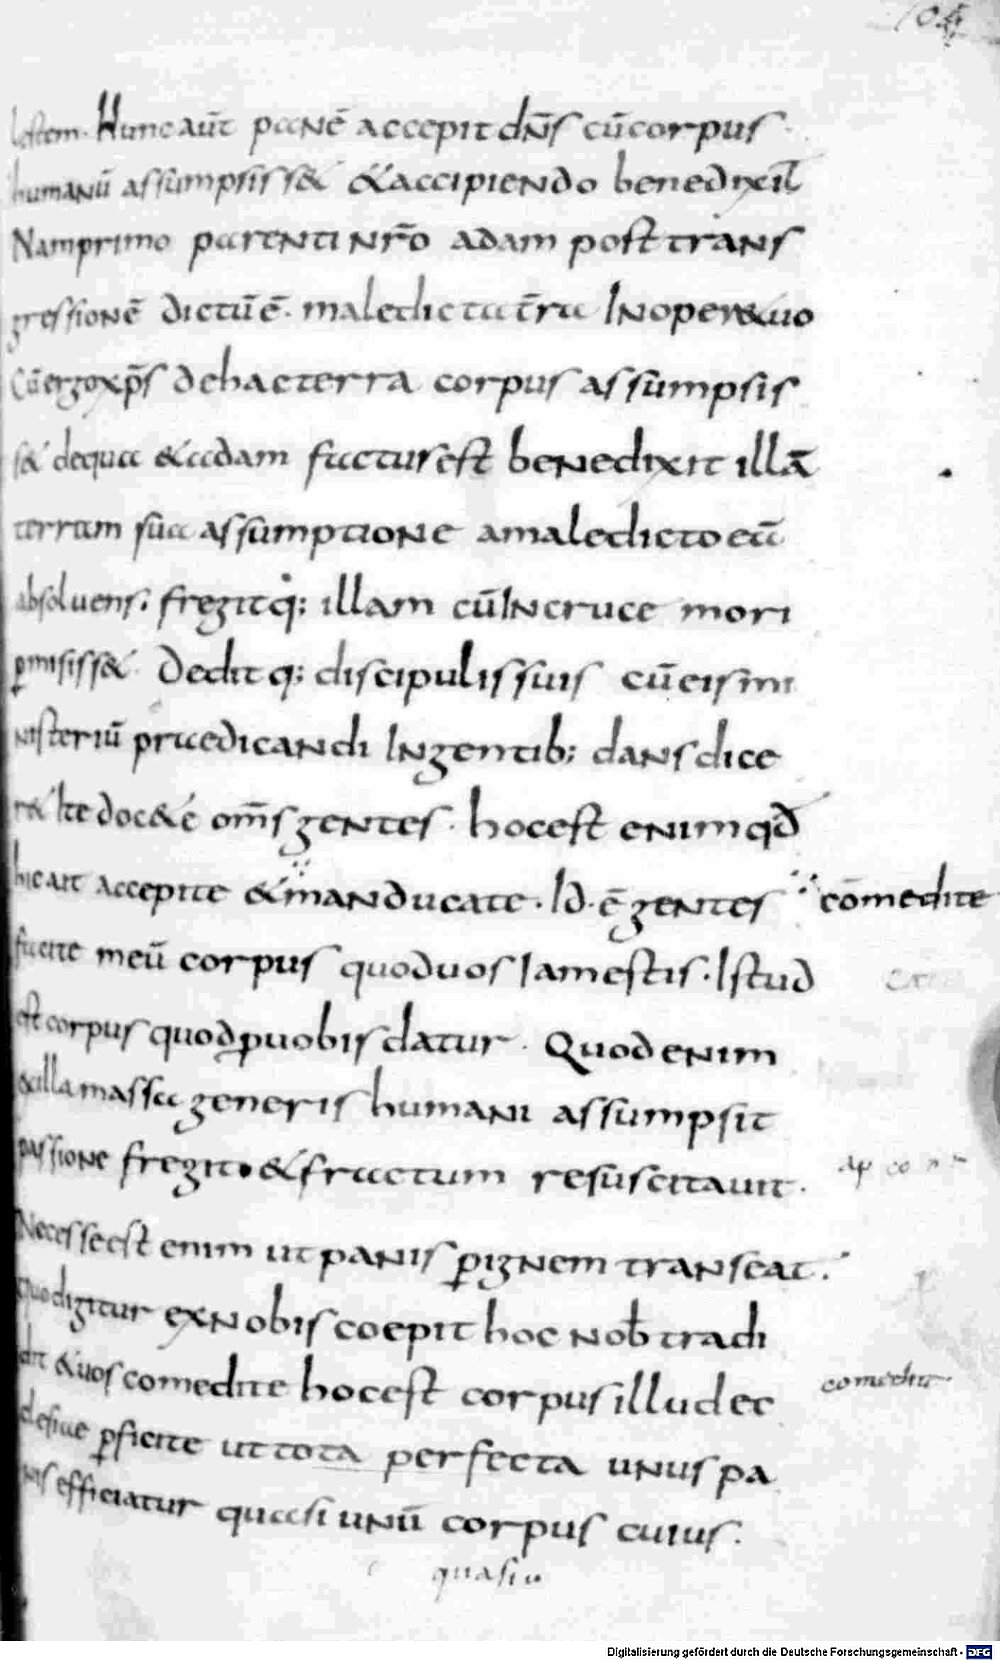 104
lestem. Hunc aūt panē accepit dn̄s cū corpus
humanū assumpsiss& & accipiendo benedixit
Nam primo parenti nr̄o adam post trans
gressionē dictū ē. maledicta t̄ra In opere tuo
Cū ergo xp̄s de hac terra corpus assumpsis
s& de qua & adam factus est benedixit illā
terram sua assumptione a maledicto eā
absoluens. fregitq; illam cū In cruce mori
p̄misiss&. Deditq; discipulis suis cū eis mi
nisteriū praedicandi In gentib; dans dice
r& Ite doc&e om̄s gentes. hoc est enim qd̄
hic ait accepite & manducate. Id. ē gentes
cōmedite
facite meū corpus quod uos Iam estis. Istud
est corpus quod p̱ uobis datur. Quod enim
ex illa massa generis humani assumpsit
passione fregit. & fractum resuscitauit.
Necesse est enim ut panis p̱ ignem transeat.
Quod igitur ex nobis coepit hoc nob̄ tradi
dit & uos comedite hoc est corpus illud ec
comedite
clesiae p̱ficite ut tota perfecta unus pa
nis efficiatur quasi unū corpus cuius.
quasi u
Digitalisierung gefördert durch die Deutsche Forschungsgemeinschaft - DFG